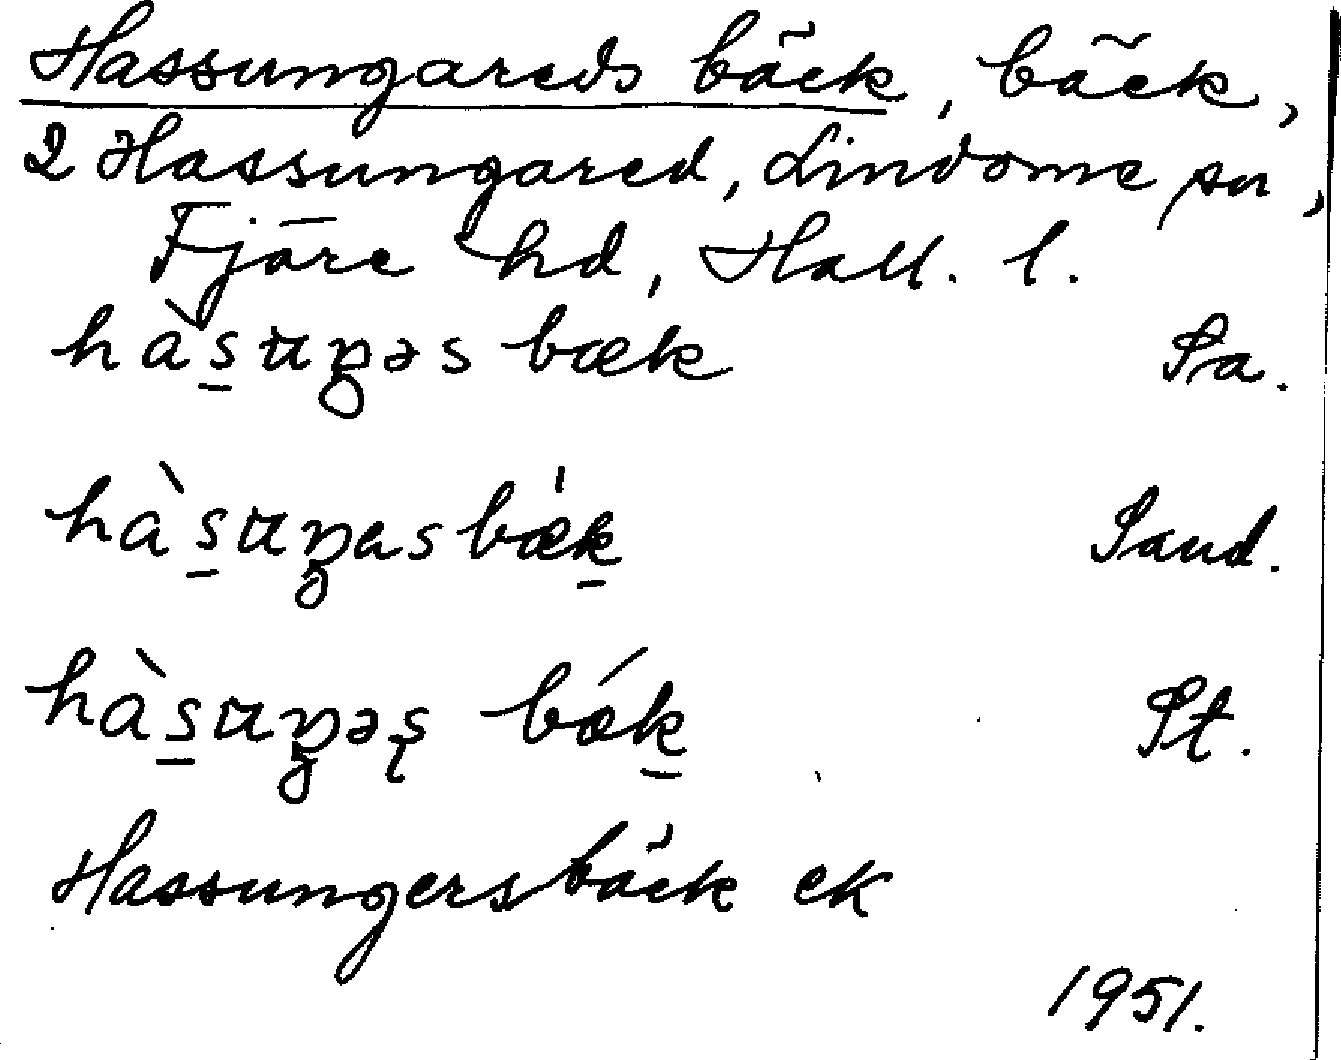 Hassungareds bäck, bäck,
2 Hassungared, Lindome sn,
Fjäre hd, Hall. l.
hàs̠ɯŋəs bæk Sa.
hàs̠ɯŋas bæ̍k̠ Sand.
hàs̠ɯŋəş bǽk̠ St.
Hassungersbäck ek
1951.